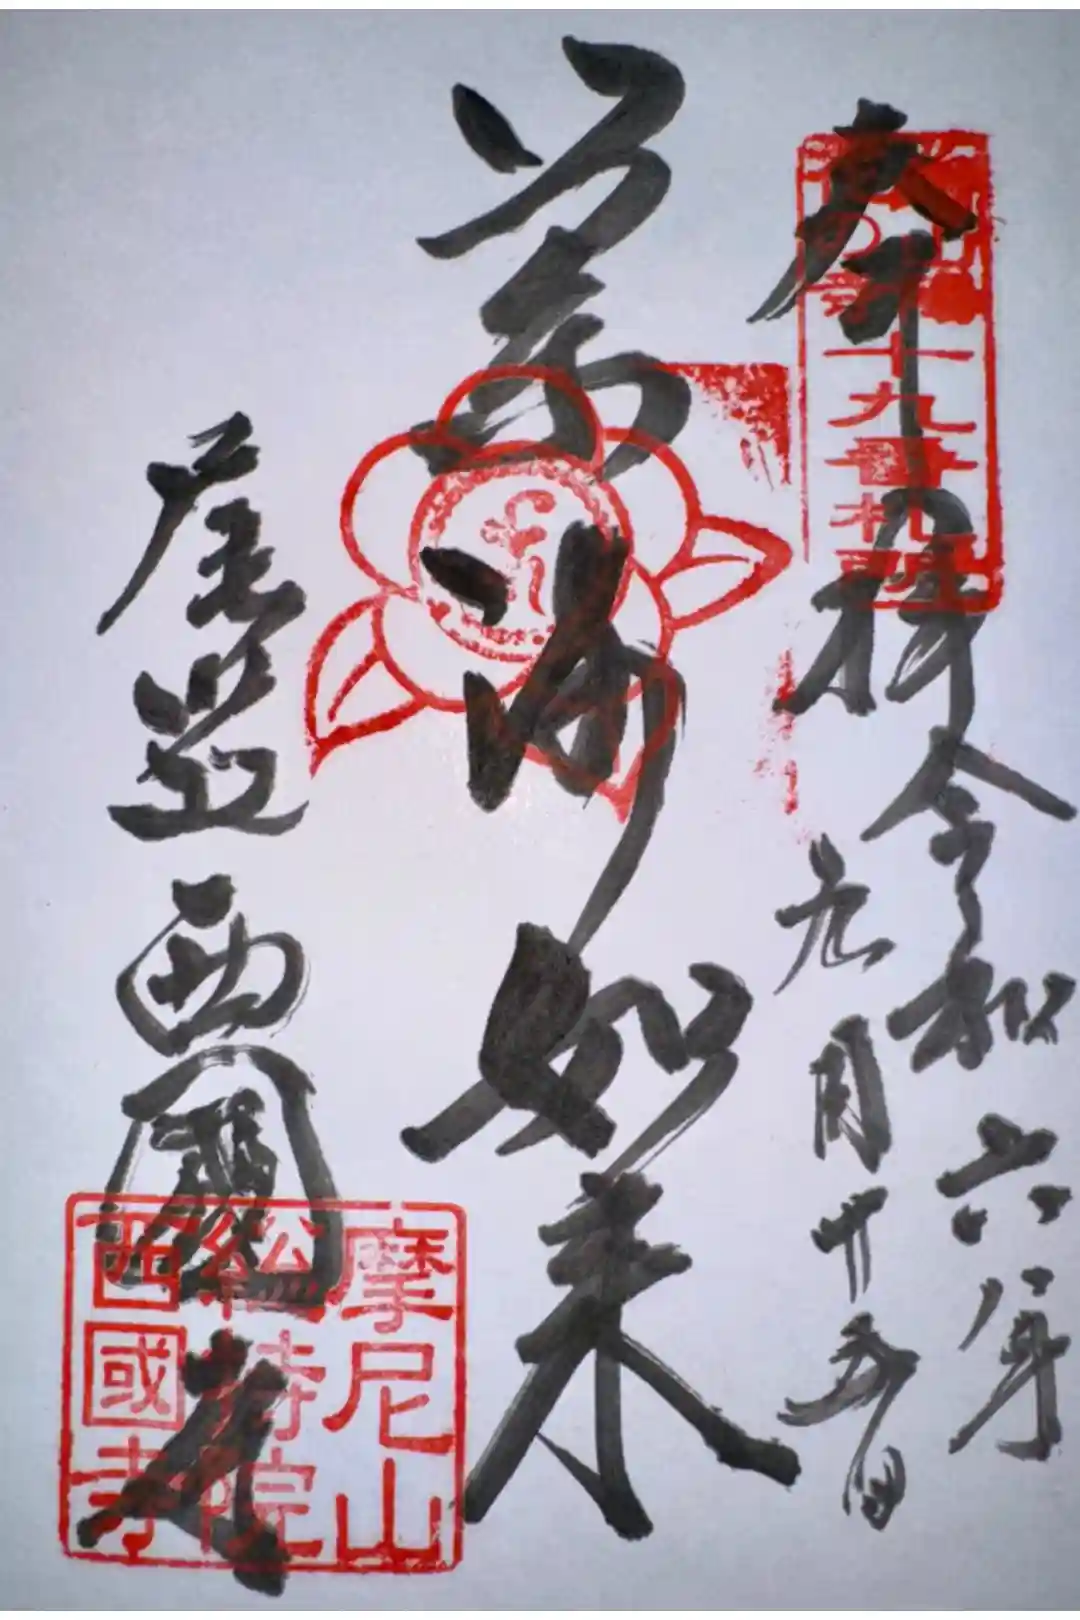 奉拝
令和六年
九月廿五日
十九番札所
薬師如来
尾道
西國寺
摩尼山
総持院
西國寺